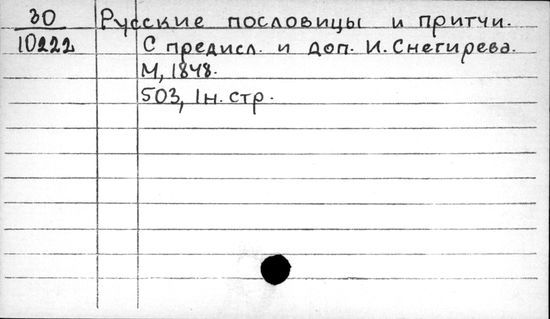 30 Русские пословицы и притчи.
10222 С предисл. и доп. И. Снегирева.
М, 1848.
503, 1н. стр.